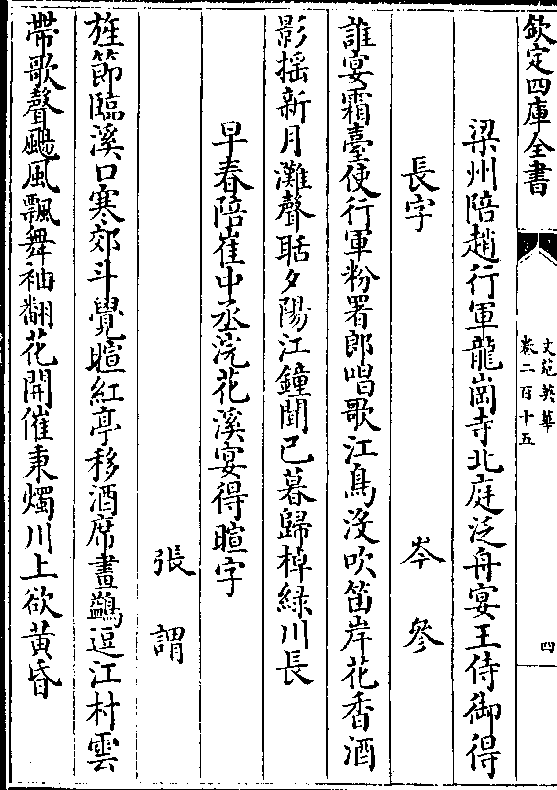 欽定四庫全書
文苑英華
卷二百十五
四
梁州陪趙行軍龍崗寺北庭泛舟宴王侍御得
長字
岑參
誰宴霜臺使行軍粉署郎唱歌江鳥沒吹笛岸花香酒
影揺新月灘聲聒夕陽江鐘聞已暮歸棹綠川長
早春陪崔中丞浣花溪宴得暄字
張謂
旌節臨溪口寒郊斗覺暄紅亭移酒席畫鷁逗江村雲
帶歌聲颺風飄舞袖翻花開催秉燭川上欲黃昏